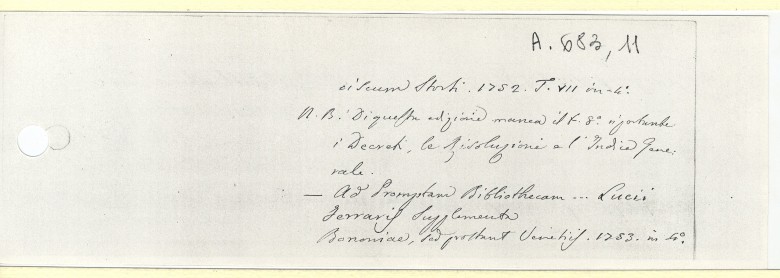 A. 683, 11
ciscum Storti. 1752. T. VII in-4°.
N. B. Di questa edizione manca il t. 8°
i Decreti, le Risoluzione e l'Indice Gene-
rale.
— Ad Promptam Bibliothecam ... Lucii
Ferraris Supplementa
Bononiae, sed prostant Venetiis. 1783. in 4°.